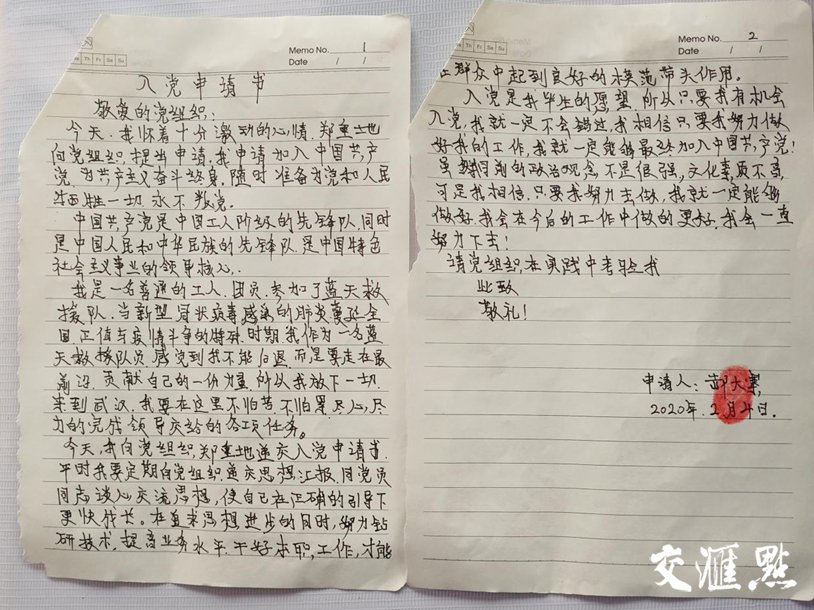 Memo No. 1
Date / /
Th Fr Sa Su
入党申请书
敬爱的党组织：
今天，我怀着十分激动的心情，郑重地
向党组织提出申请，我申请加入中国共产
党，为共产主义奋斗终身，随时准备为党和人民
牺牲一切，永不叛党。
中国共产党是中国工人阶级的先锋队，同时
是中国人民和中华民族的先锋队，是中国特色
社会主义事业的领导核心。
我是一名普通的工人，团员，参加了蓝天救
援队，当新型冠状病毒感染的肺炎蔓延全
国，正值与疫情斗争的特殊时期，我作为一名蓝
天救援队员感觉到我不能后退，而是要走在最
前沿，贡献自己的一份力量，所以我放下一切，
来到武汉，我要在这里不怕苦不怕累，尽心，尽
力的完成领导交给的各项任务。
今天，我向党组织，郑重地递交入党申请书，
平时我要定期向党组织递交思想汇报，同党员
同志谈心交流思想，使自己在正确的引导下
更快成长。在追求思想进步的同时，努力钻
研技术，提高业务水平，干好本职，工作，才能
Memo No. 2
Date / /
Th Fr Sa Su
在群众中起到良好的模范带头作用。
入党是我毕生的愿望，所以只要我有机会
入党，我就一定不会错过，我相信只要我努力做
好我的工作，我就一定能够最终加入中国共产党！
虽然目前的政治观念不是很强，文化素质不高，
可是我相信，只要我努力去做，我就一定能够
做好，我会在今后的工作中做的更好，我会一直
努力下去！
请党组织在实践中考验我
此致
敬礼！
申请人：大
2020年2月4日．
交滙點